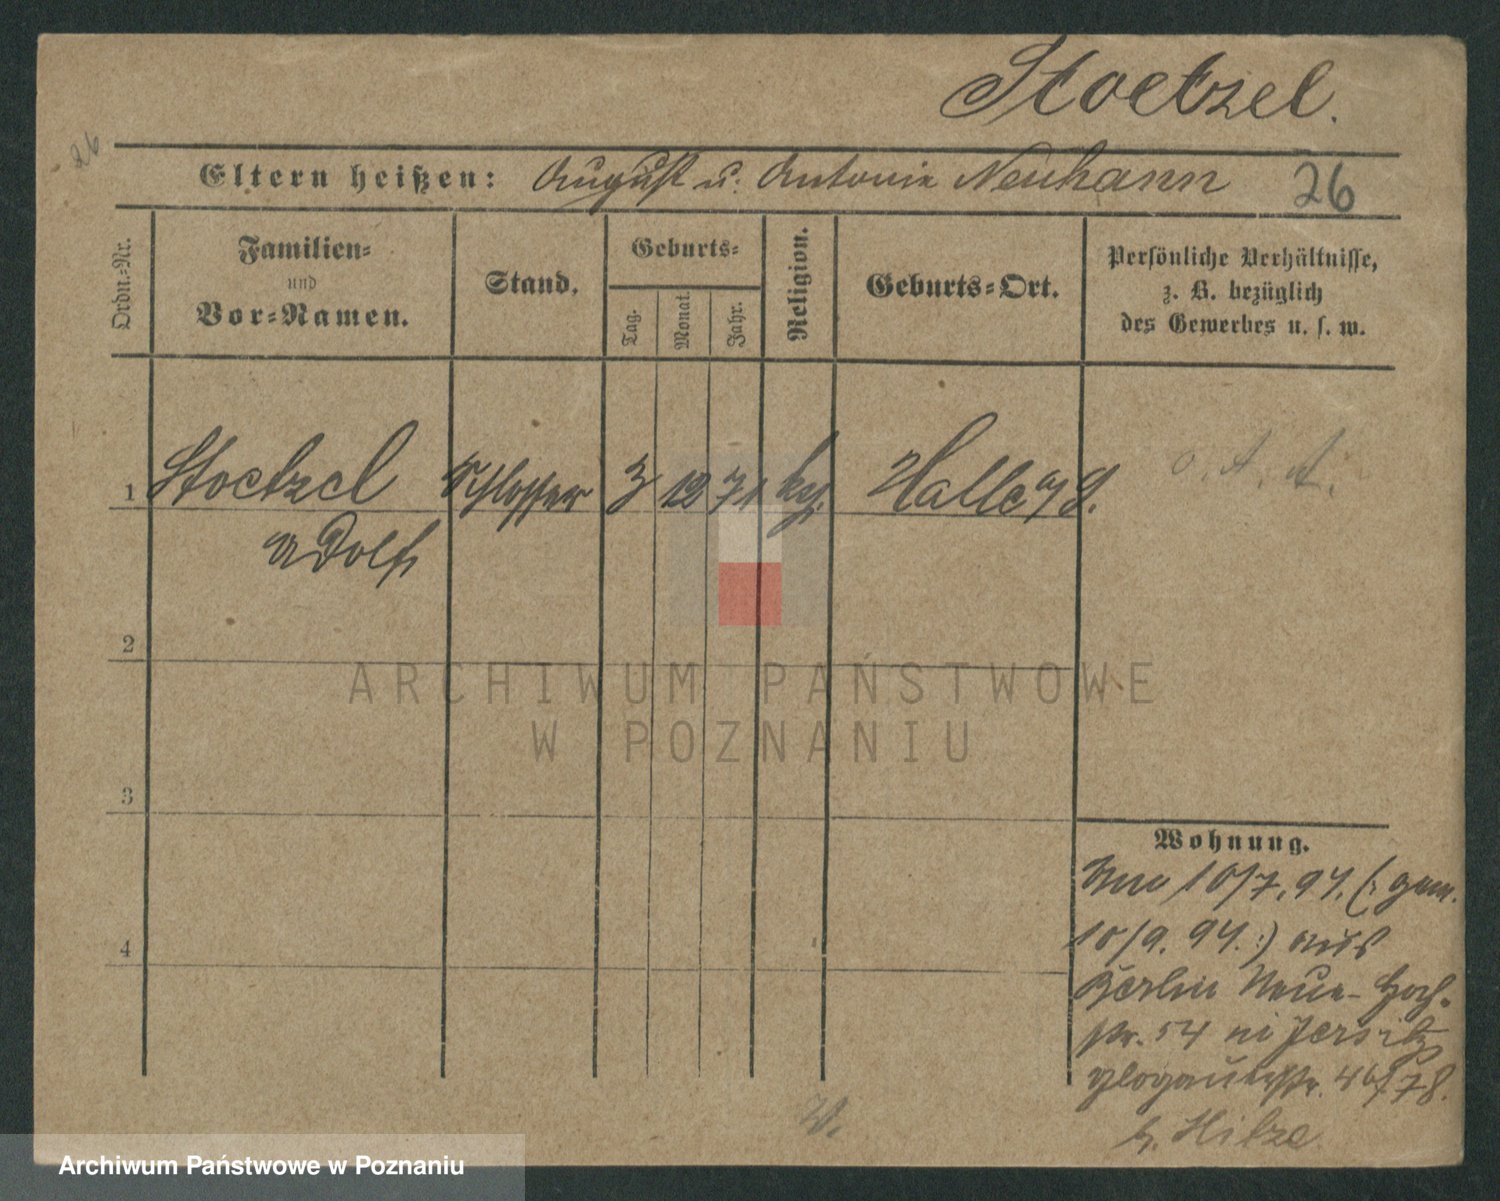 Stoetzel.
26
Eltern heißen: August u. Antonie Neuhann 26
Ordn.=Nr.
Familien=
und
Vor=Namen.
Stand.
Geburts=
Tag.
Monat.
Jahr.
Religion.
Geburts=Ort.
Persönliche Verhältnisse,
z. B. bezüglich
des Gewerbes u. s. w.
1 Stoetzel Schlosser 3 12 71 Halle a/S.
Adolf
2
ARCHIWUM PAŃSTWOWE
W POZNANIU
3
4
Wohnung.
10/7. 94. (: gem.
10/9. 94. :) aus
Berlin Neue Hoch-
str. 54 in Jersitz
Glogauerstr.
Hilze
Archiwum Państwowe w Poznaniu